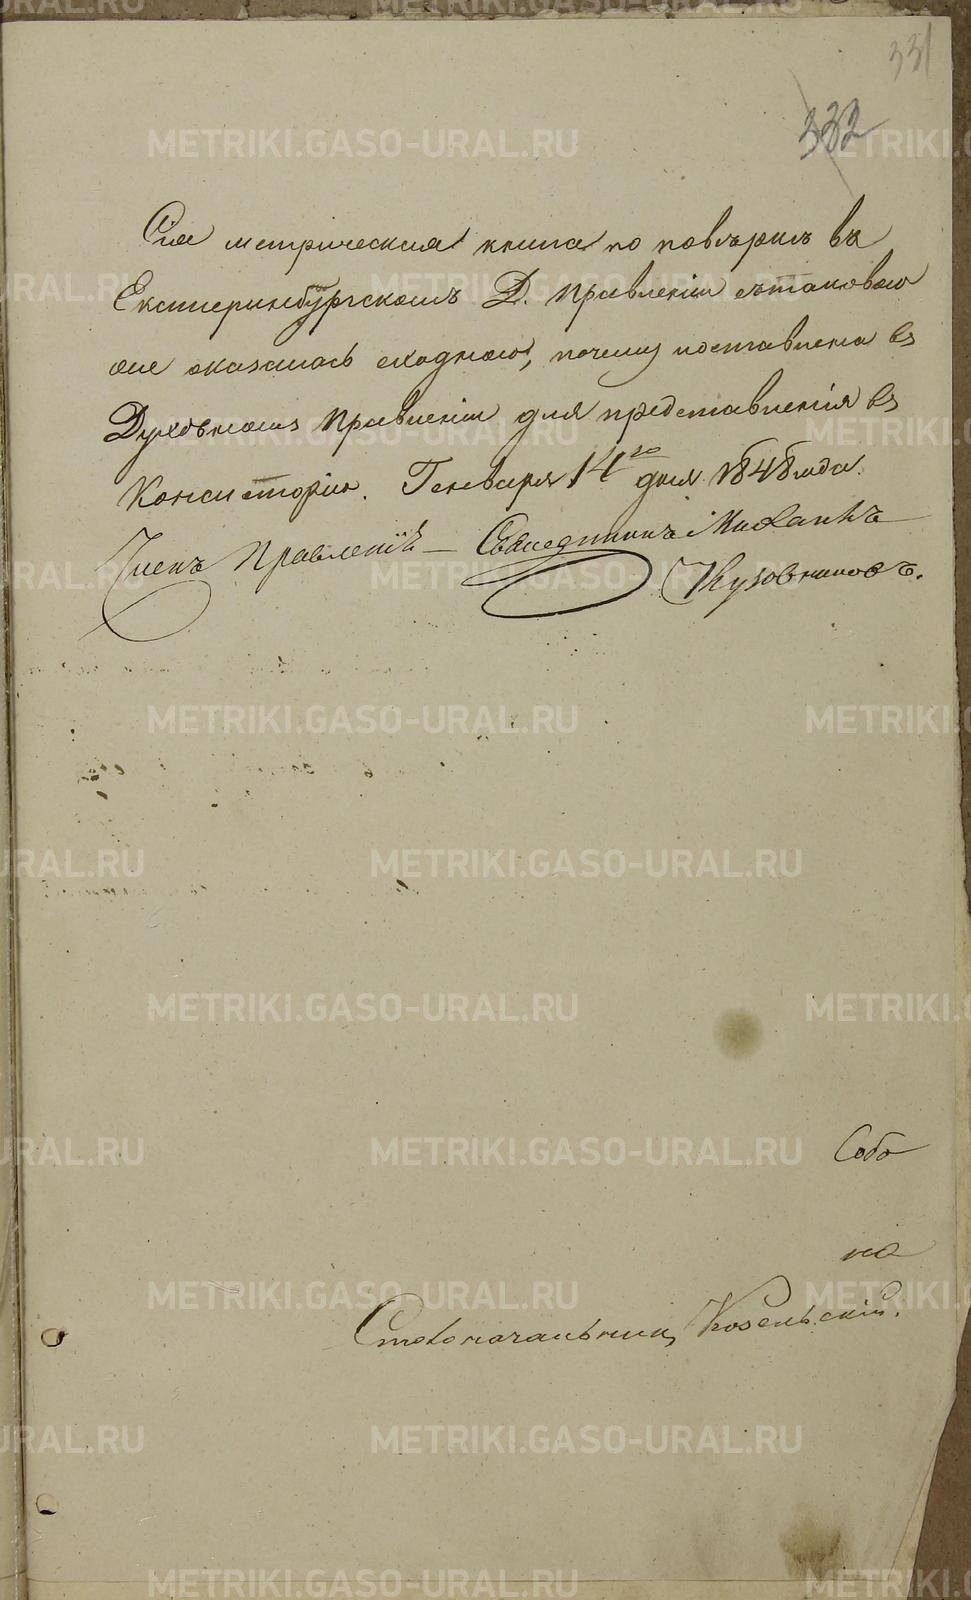 331
332
Сiя метрическая книга по повѣркѣ въ
Екатеринбургскомъ Д. Правленiи съ таковою
же оказалась сходною, почему и оставлена въ
Духовномъ Правленiи для представленiя въ
Консисторiю. Генваря 14го дня 1848 года.
Членъ Правленiя — Священникъ Михаилъ
Кузовниковъ.
Собо
на
Столоначальникъ Козельскiй.
METRIKI.GASO-URAL.RU